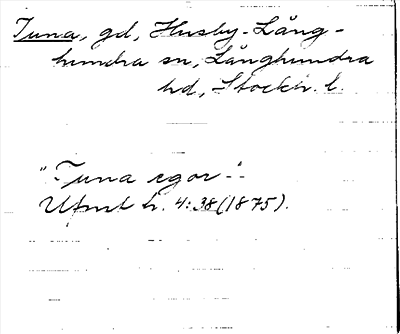 Tuna, gd, Husby-Lång-
hundra sn, Långhundra
hd, Stockh. l.
"Tuna egor"
Utmt h. 4:38 (1875).